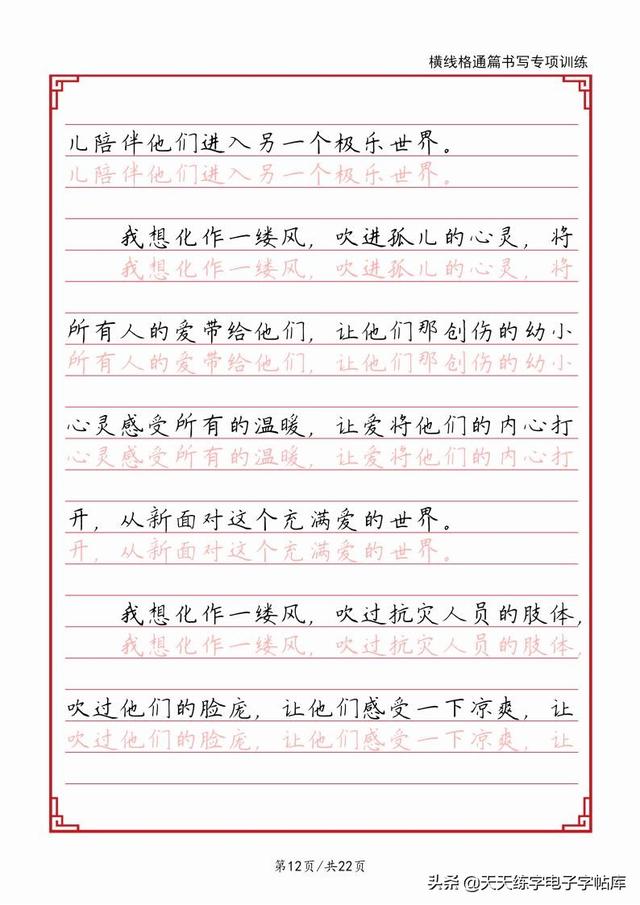 横线格通篇书写专项训练
儿陪伴他们进入另一个极乐世界。
儿陪伴他们进入另一个极乐世界。
我想化作一缕风，吹进孤儿的心灵，将
我想化作一缕风，吹进孤儿的心灵，将
所有人的爱带给他们，让他们那创伤的幼小
所有人的爱带给他们，让他们那创伤的幼小
心灵感受所有的温暖，让爱将他们的内心打
心灵感受所有的温暖，让爱将他们的内心打
开，从新面对这个充满爱的世界。
开，从新面对这个充满爱的世界。
我想化作一缕风，吹过抗灾人员的肢体，
我想化作一缕风，吹过抗灾人员的肢体，
吹过他们的脸庞，让他们感受一下凉爽，让
吹过他们的脸庞，让他们感受一下凉爽，让
第12页/共22页
头条 @天天练字电子字帖库